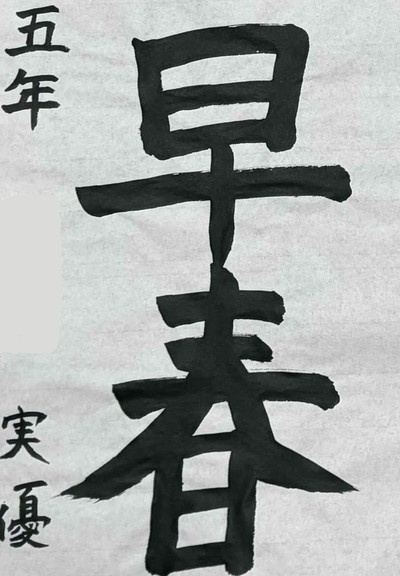 早春
五年
実優